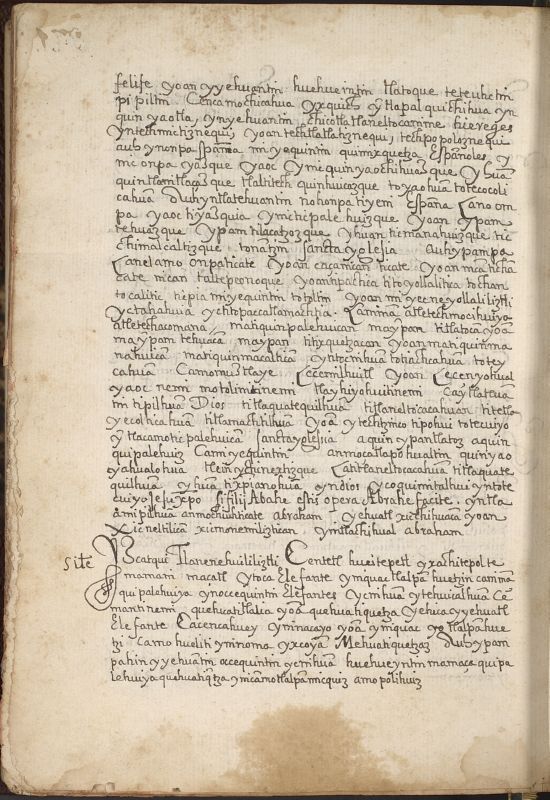 felipe yoan yyehuantin huehueintin tlatoque teteuhctin
pipiltin Cenca mochicahua yxquich ytlapal quichihua yn
quin yaotla, ynyehuantin chicotlatlaneltocanime hereges
yntechmictiznequi, yoan techtlatlatiznequi, techpopoloznequi
auh ynonpa spaña miyequintin quimixquetza Españoles, y
mic onpa yazque yaoc ymiquin yaochihuazque yhuā
quintlamitlazque tlaltitech quinhuicazque toyaohuā totecocoli
cahuā Auh yn tlatehuantin nohonpa tiyeni España Canoom
pa yaoc tiyazquia ymictepalehuizque yoan ypam
tehuazque ypam titlacatizque yhuan ticmanahuizque tic
chimalcaltizque tonantzin sanctayglesia auh ypampa
Canelamo onpa ticate yoan encamican ticate yoan nican ticha
cate nican taltepeuoque yoan tipachica titoyollalitica tochan
tocalitic tiepia miyequintin totzlin yoan miyecneyollaliliztli
yctahahuia ychtopaccatlamachtia. Camma atletechmocihuiyo
atletechacomana, matiquinpalehuican maypan titlatoca yoā
maypan tehuaca, maypan titixquetzacan yoan matiquinma
nahuica matiquinmacaltica yntecnihuā totiachcahuā totey
cahuā Camomuztlaye Cecemilhuitl yoan Cecenyohual
yaoc nemi motolimtinemi tlayhiyohuitinemi Cayttatzua
mi tipilhuā Dios titlaquatequilhuā titlaneltocacahuan titetla
yecoltica huā titlamachtilhuā yoā ytechtzinco tipohui totecuiyo
ytlacamoticpalehuicā sanctayglesia aquin ypantlatoz aquin
quipalehuiz Camiyequintin anmocatlapohualtin quinyao
yahualohua tleinychinezhizque Catitlaneltocacahua titlaquate
quilhuā yhuā tixpianohuā yn dios ycoquimitalhui yn tote
cuiyo Jesuxpo Si filij Abahe estis opera Abrahe facite. yntla
amipilhuā anmochiuhticate abraham yehuatl xicchihuacā yoan
xicneltilicā xicmonemilizti can yntlachihual abraham
Site Yzcatqui Tlanenehuililiztli Centetl hueitepetl yxachitepolte
mamani macatl ytoca Elefante ynquac tlalpā huetzin cammā
quipalehuiya ynoccequintin Elefantes ycnihuā ytehuicalhuā Ce
mantinemi quehuatitlalia yoā quehuatiquetza yehica yyehuatl
Elefante Cacencahuey yninacayo yoā ynquac yetlalpāhue
tzi camo hueliti yninoma yxcoyā Mehuatiquetzaz Auh ypam
pahin yyehuatin occequintin ycnihuā huehueyntin mamaça quipa
lehuiya quehuatiqtza ynicamotlalpāmicquiz amopolihuiz